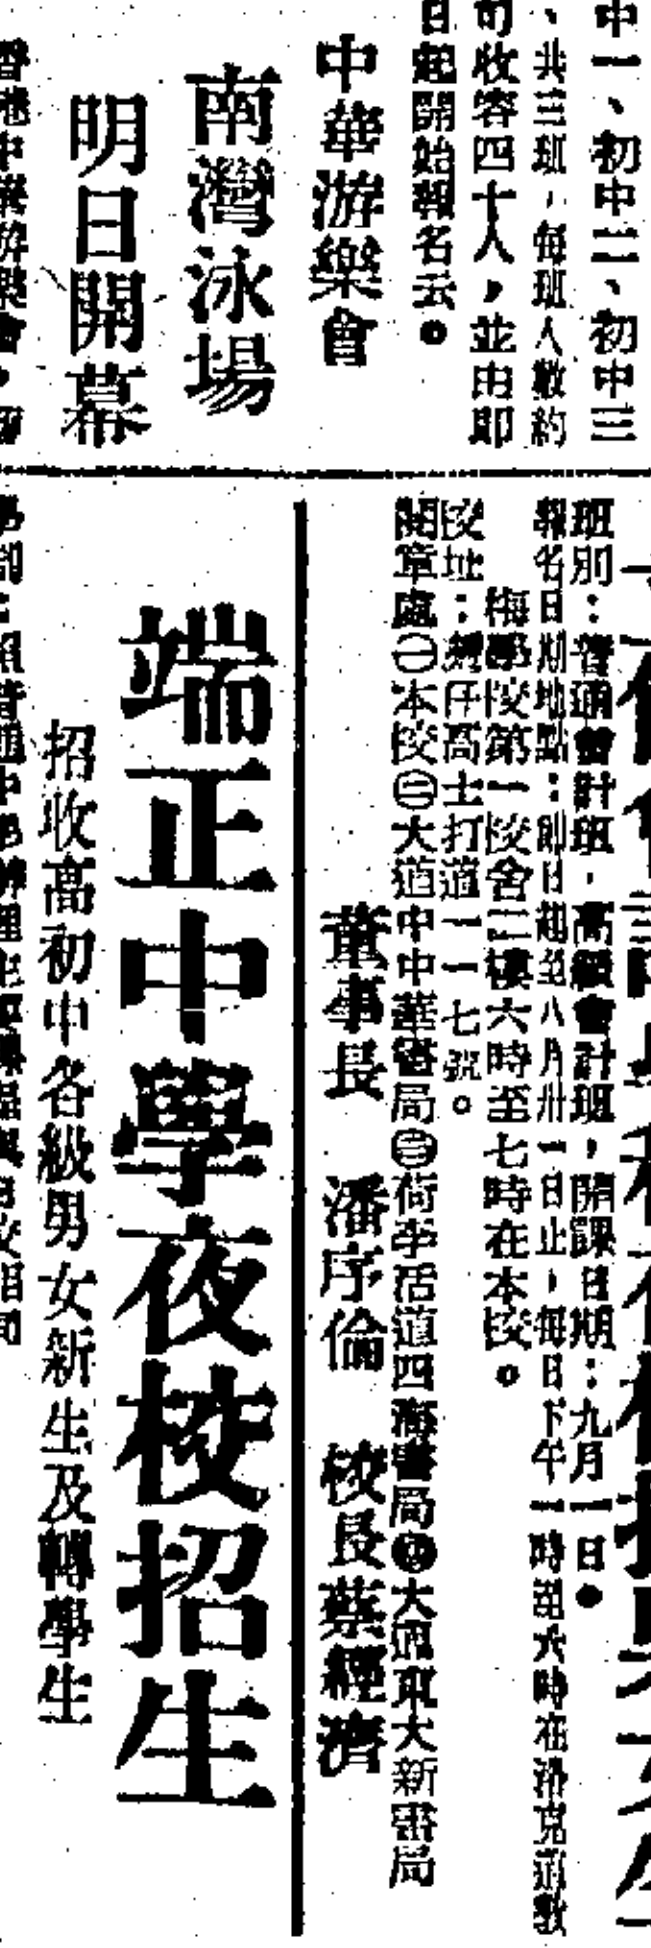 中一、初中二、初中三
、共三班，每班人數約
可收容四十人，並由即
日起開始報名云。
中華游樂會
南灣泳場
明日開幕
班別：普通會計班，高級會計班，開課日期：九月一日。
報名日期地點：即日起至八月卅一日止，每日下午一時至六時在洛克道敦
梅學校第一校舍二樓六時至七時在本校。
校址：灣仔高士打道一一七號。
閱章處㊀本校㊁大道中中華書局㊂荷李活道四海書局㊃大道東大新書局
董事長 潘序倫 校長蔡經濟
端正中學夜校招生
招收高初中各級男女新生及轉學生